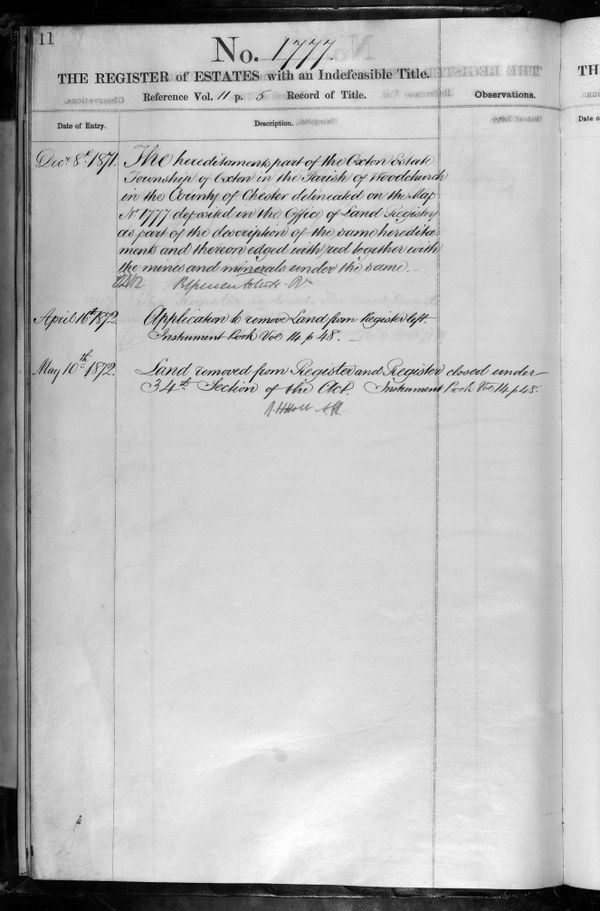 11
No. 1777.
THE REGISTER of ESTATES with an Indefeasible Title.
Reference Vol. 11 p. 5 Record of Title.
Observations.
Date of Entry.
Description.
Decr 8th 1871.
The hereditaments part of the Oxton Estate
Township of Oxton in the Parish of Woodchurch
in the County of Chester delineated on the Map
No 1777 deposited in the Office of Land Registry
as part of the description of the same heredita-
ments and thereon edged with red together with
the mines and minerals under the same.
April 16th 1872
Application to remove Land from Register left.
Instrument Book Vol 14 p 48.
May 10th 1872.
Land removed from Register and Register closed under
34th Section of the Act. Instrument Book Vol 14 p 48.
TH
Date o